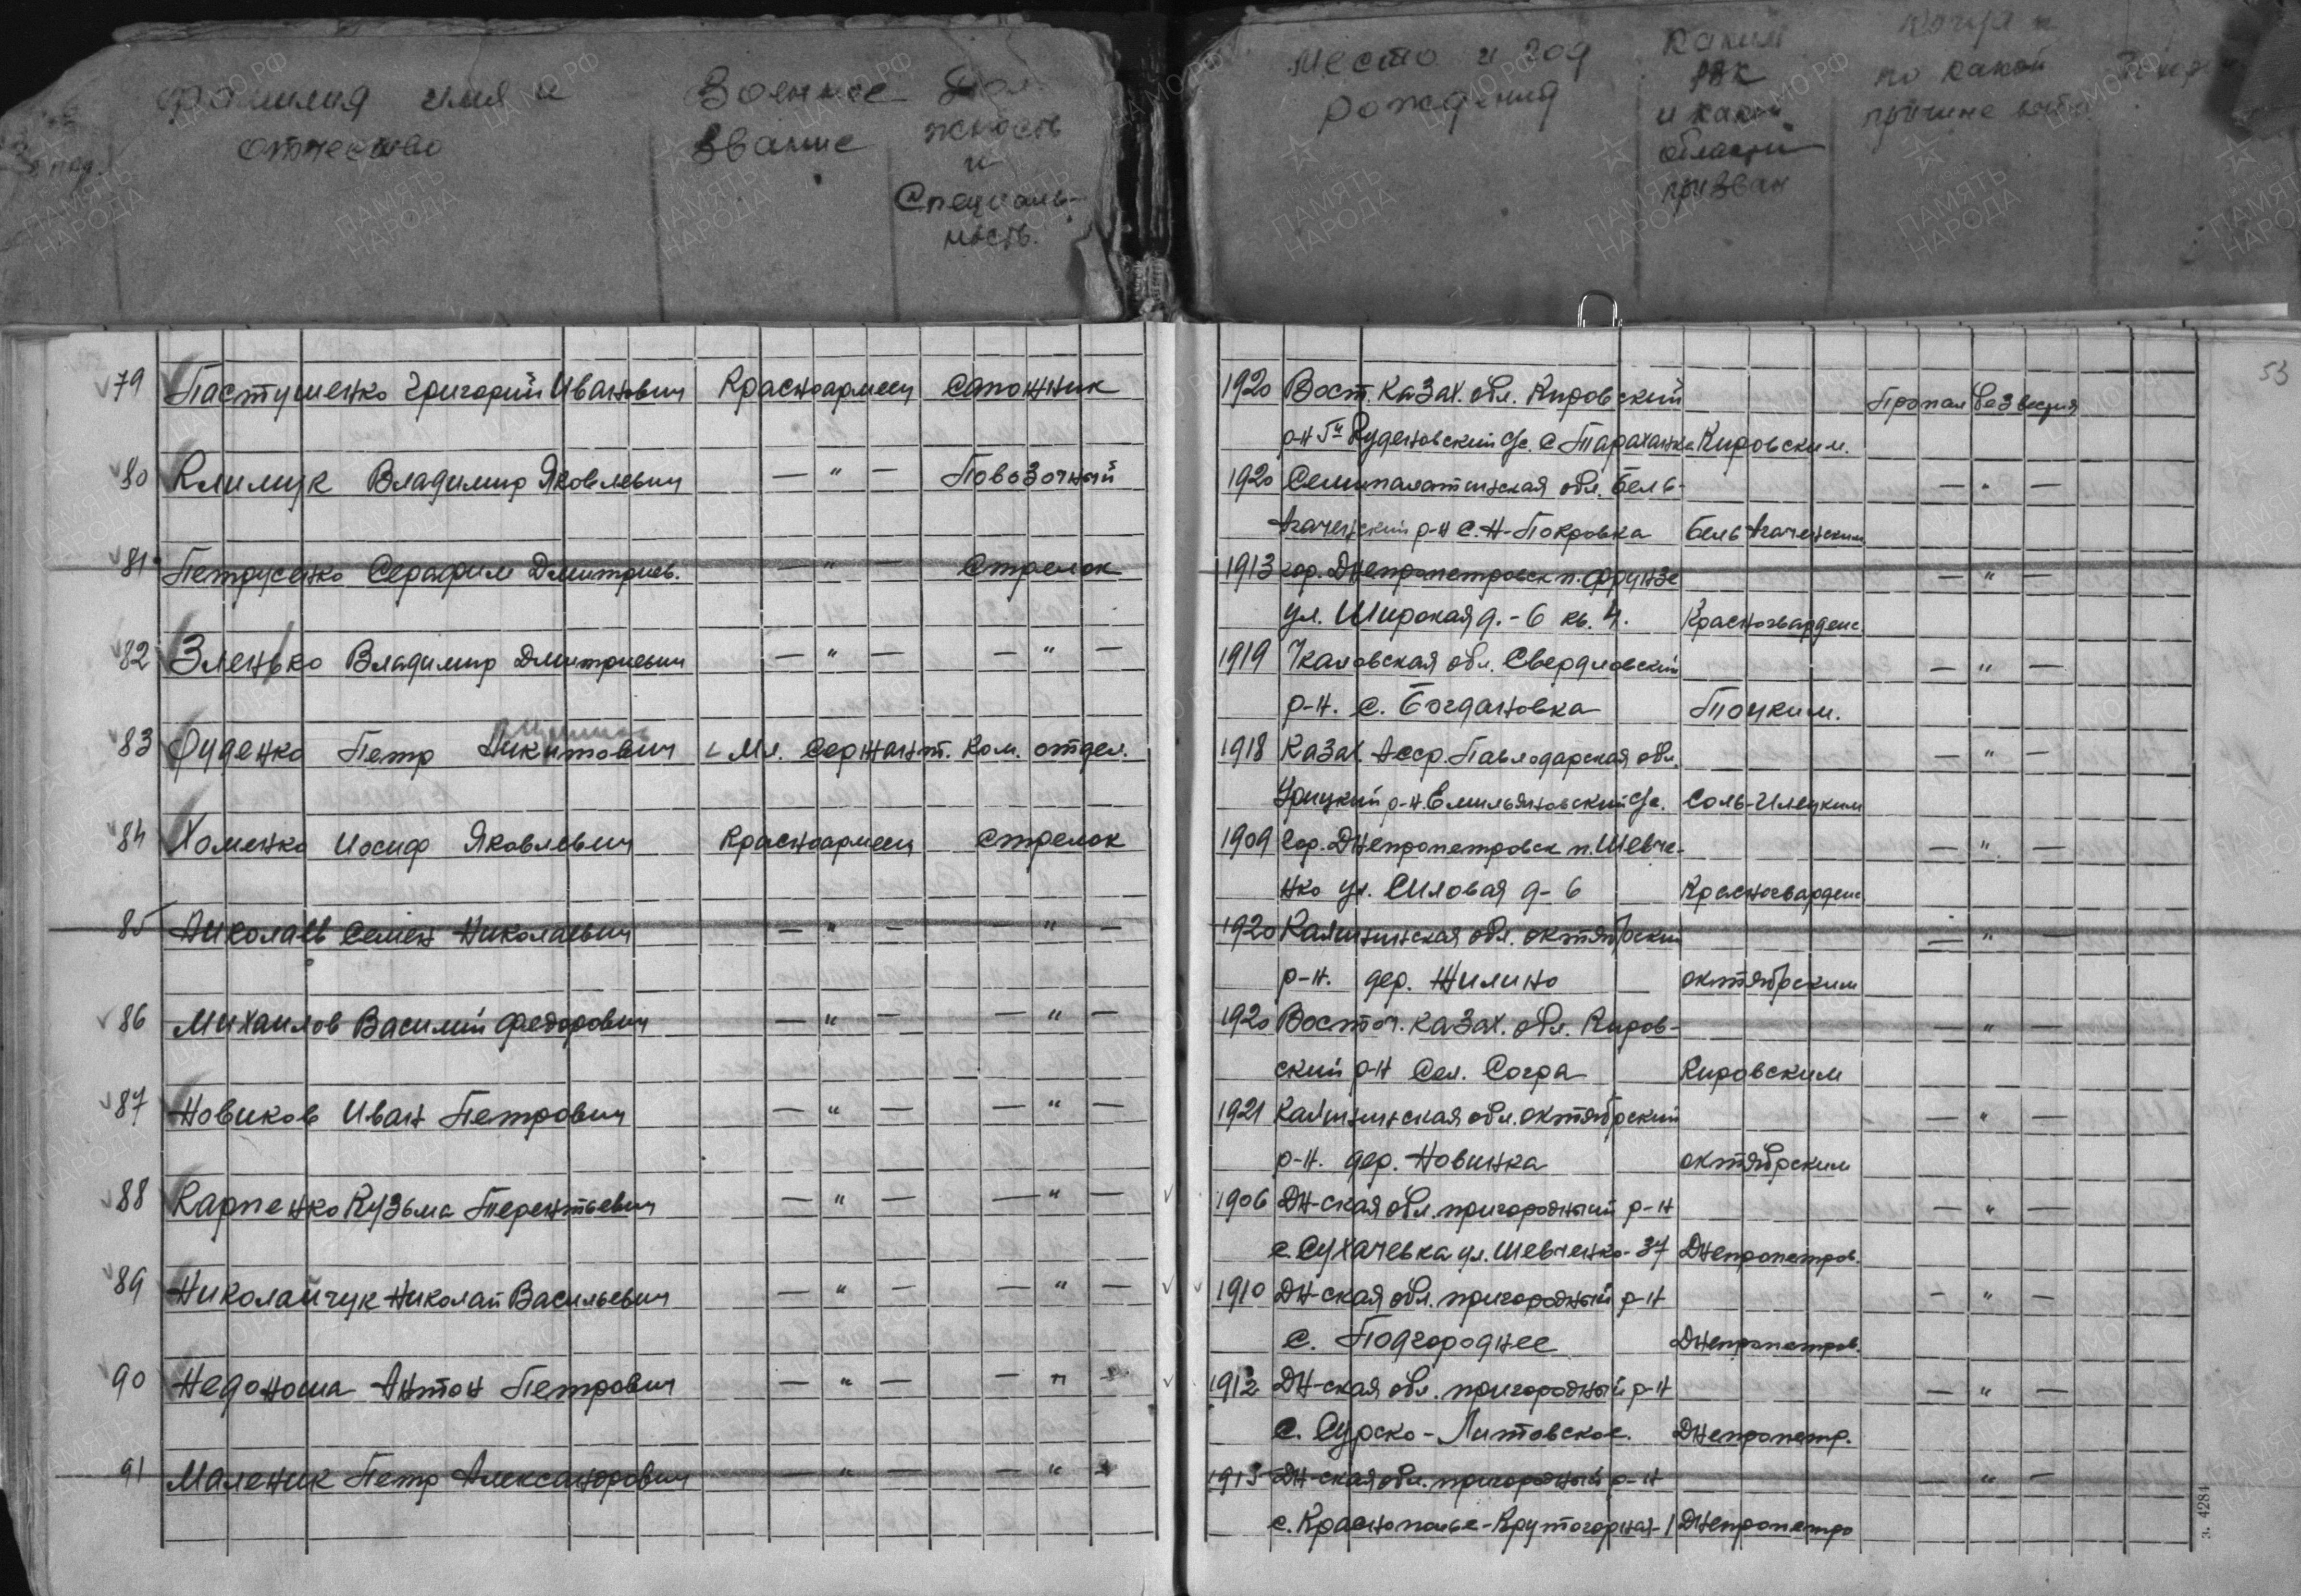 Фамилия имя и отчество
Военное звание
Должность и Специальность.
Место и год рождения
Каким РВК и какой области призван
по какой причине
53
79 Пастушенко Григорий Иванович Красноармеец Сапожник 1920 Вост. Казах. обл. Кировский Пропал без вести
р-н Гуденовский с/с. с Тараханка Кировским.
80 Климук Владимир Яковлевич — " — Повозочный 1920 Семипалатинская обл. Бель- — " —
Агаченский р-н С. Н-Покровка Бель Агаченским
81 Петрусенко Серафим Дмитриев. — " — Стрелок 1913 гор. Днепропетровск п. Фрунзе — " —
ул. Широкая д.-6 кв. 4. Красногвардейс
82 Зленько Владимир Дмитриевич — " — — " — 1919 Чкаловская обл. Свердловский — " —
р-н. с. Богдановка Тоцким.
83 Руденко Петр Никитович Мл. Сержант. Ком. отдел. 1918 Казах. Асср. Павлодарская обл. — " —
Урицкий р-н. Емильяновский с/с. Соль-Илецким
84 Хоменко Иосиф Яковлевич Красноармеец Стрелок 1909 Гор. Днепропетровск п. Шевче- — " —
нко ул. Силовая д-6 Красногвардейс
85 Николаев Семен Николаевич — " — — " — 1920 Калининская обл. октябрьский — " —
р-н. дер. Жилино октябрьским
86 Михаилов Василий Федорович — " — — " — 1920 Восточ. Казах. обл. Киров- — " —
ский р-н Сел. Согра Кировским
87 Новиков Иван Петрович — " — — " — 1921 Калининская обл. октябрьский — " —
р-н. дер. Новинка октябрьским
88 Карпенко Кузьма Терентьевич — " — — " — 1906 Дн-ская обл. пригородный р-н — " —
с Сухачевка ул. Шевченко-37 Днепропетров.
89 Николайчук Николай Васильевич — " — — " — 1910 Дн-ская обл. пригородный р-н — " —
с. Подгороднее Днепропетров.
90 Недоноша Антон Петрович — " — — " — 1912 Дн-ская обл. пригородный р-н — " —
с. Сурско-Литовское. Днепропетр.
91 Маленик Петр Александрович — " — — " — 1915 Дн-ская обл. пригородный р-н — " —
с. Краснополье-Крутогорная-1 Днепропетро
з. 4284
ПАМЯТЬ НАРОДА
ЦАМО РФ